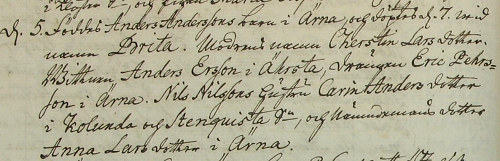 d. 5. Föddes Anders Anderssons barn i Ärna, och döptes d. 7. med
namn Brita. Modrens namn Cherstin Lars dotter.
Wittnen Anders Ersson i Åkrosta, Drängen Eric Pehrs-
son i Ärna. Nils Nilssons hustru Carin Anders dotter
i Kolunda och Stenquista Sn, och Nämndemans dotter
Anna Lars dotter i Ärna.